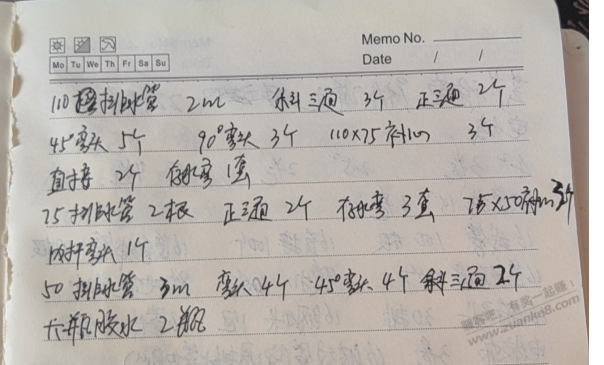 Memo No.
Mo Tu We Th Fr Sa Su
Date / /
110 排水管 2m 斜三通 3个 正三通 2个
45°弯头 5个 90°弯头 3个 110×75 补 3个
直接 2个 存水弯 1套
75 排水管 2根 正三通 2个 存水弯 3套 75×50补
弯头 1个
50 排水管 3m 弯头 4个 45°弯头 4个 斜三通 2个
大瓶胶水 2瓶
赚客吧,有奖一起赚!
www.zuanke8.com